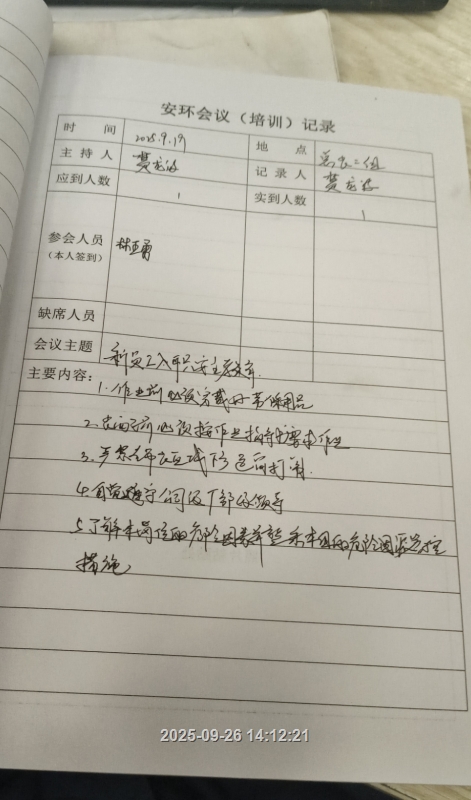 安环会议（培训）记录
时 间 2025.9.19 地 点 总装二组
主 持 人 龙 记 录 人 龙
应到人数 1 实到人数 1
参会人员 林亚勇
（本人签到）
缺席人员
会议主题 新员工入职安全教育.
主要内容：
1.作业前必须穿戴好劳保用品
2.必须按作业指导书要求作业
3.严禁在区域下追逐打闹.
4.自觉遵守公司及干部的领导
5.了解本岗位的危险因素并整来本岗的危险因源与控
措施
2025-09-26 14:12:21